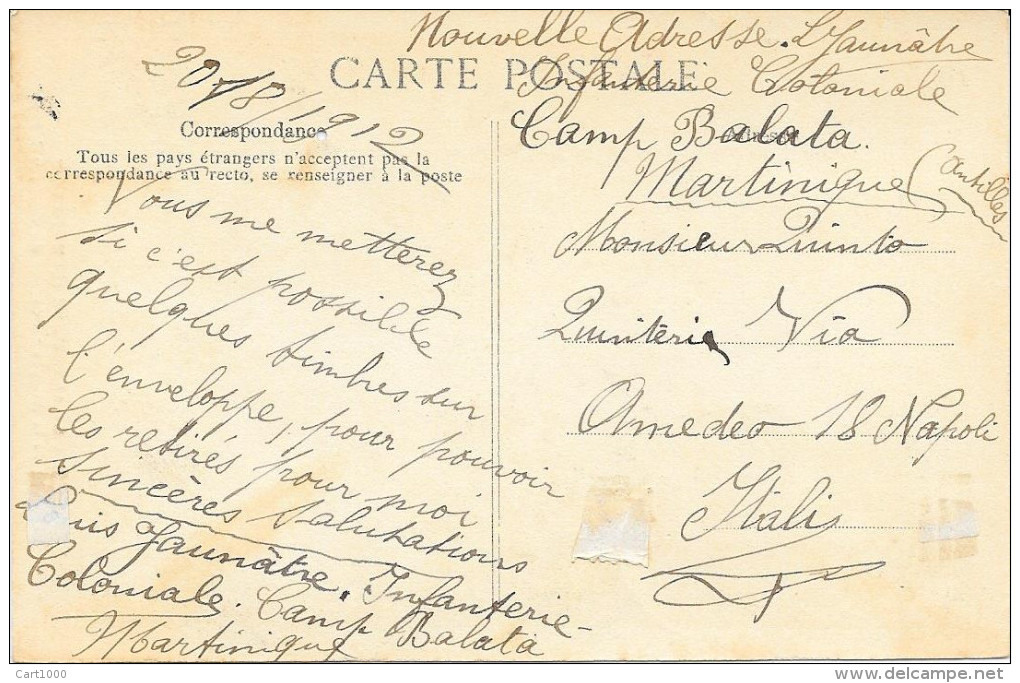 Nouvelle Adresse. L Jaunâtre
CARTE POSTALE
Infanterie Coloniale
Camp Balata.
Martinique (Antilles
20/8/1912
Correspondance
Tous les pays étrangers n'acceptent pas la
correspondance au recto, se renseigner à la poste
Vous me metterez
si c'est possible
quelques timbres sur
l'enveloppe, pour pouvoir
les retirés pour moi
Sincères Salutations
Louis Jaunâtre. Infanterie
Coloniale. Camp Balata
Martinique
Adresse
Monsieur Quinto
Quinterie Via
Amedeo 18 Napoli
Italie
Cart1000
www.delcampe.net